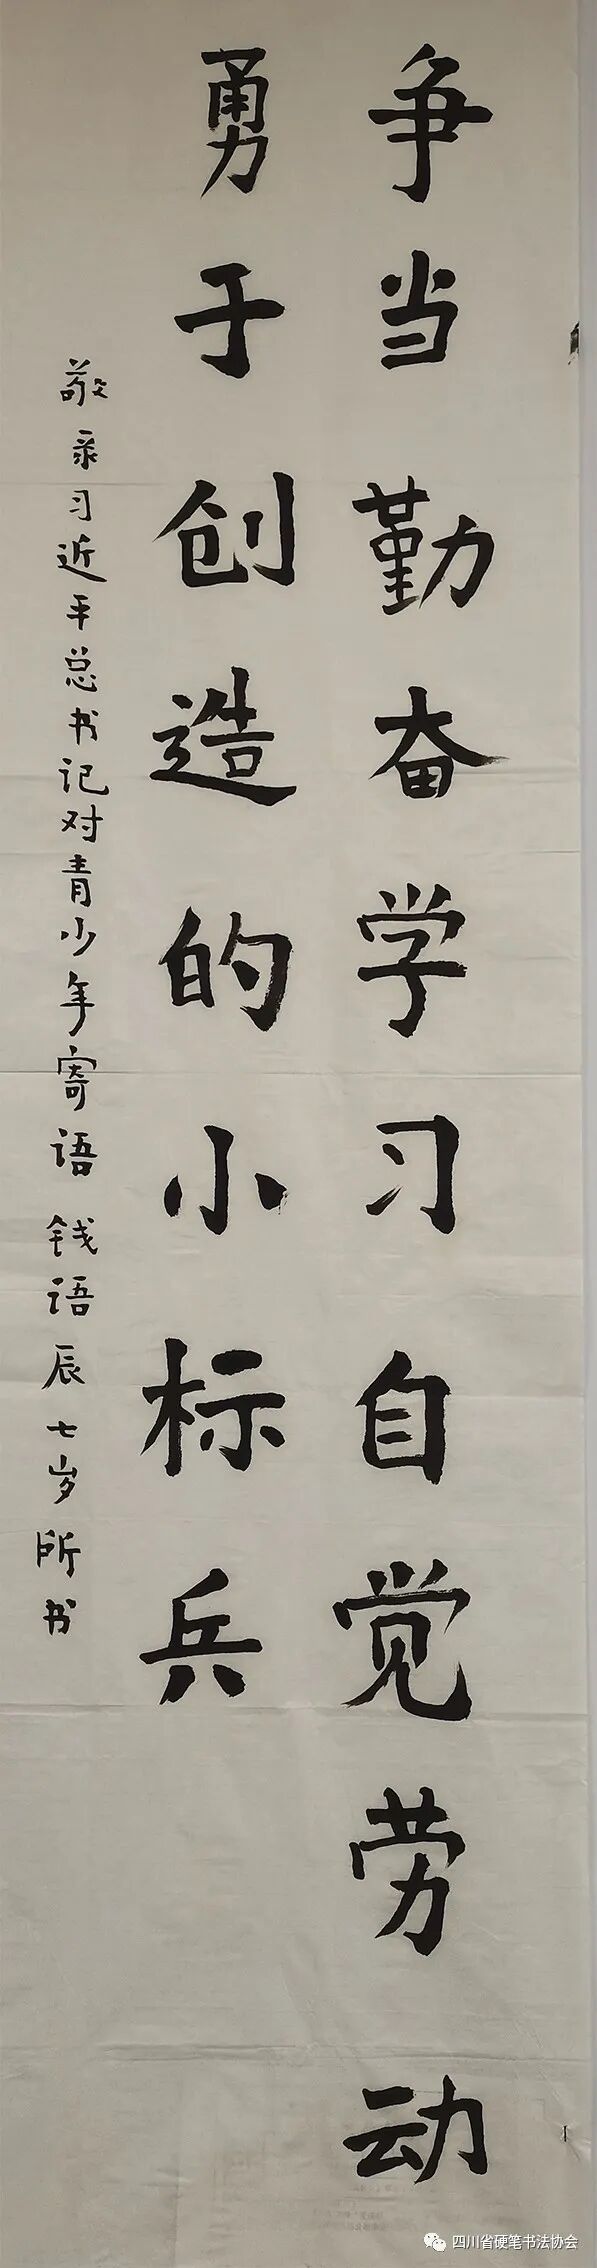 争当勤奋学习自觉劳动
勇于创造的小标兵
敬录习近平总书记对青少年寄语 钱语辰七岁所书
四川省硬笔书法协会